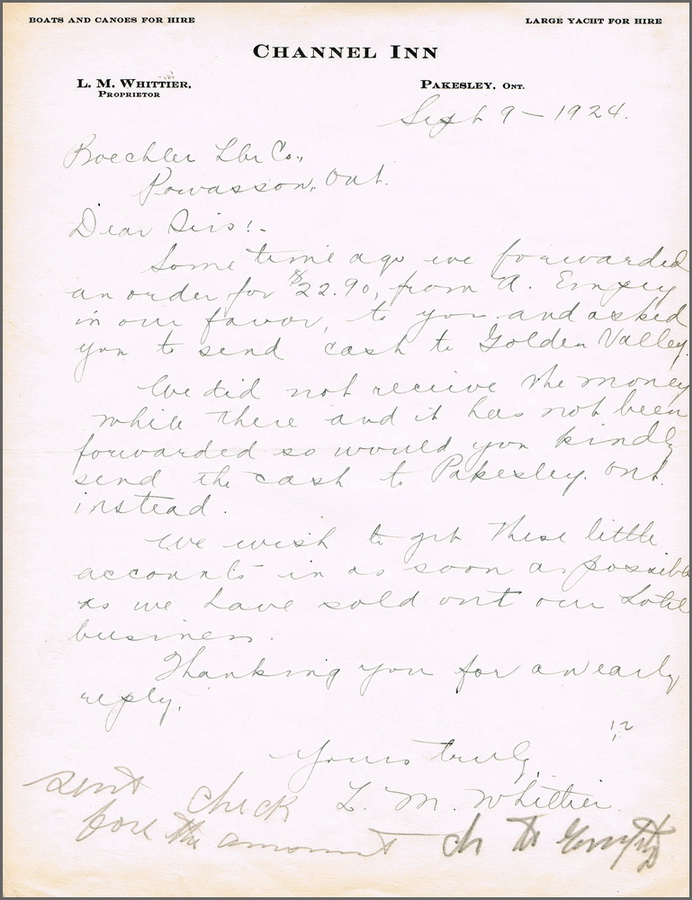 BOATS AND CANOES FOR HIRE
LARGE YACHT FOR HIRE
CHANNEL INN
L. M. WHITTIER,
PROPRIETOR
PAKESLEY, ONT.
Sept 9 - 1924.
Boechler Lbr Co.,
Powasson, Ont.
Dear Sirs!-
Some time ago we forwarded
an order for $22.90, from A. Empey
in our favor, to you and asked
you to send cash to Golden Valley.
We did not receive the money
while there and it has not been
forwarded so would you kindly
send the cash to Pakesley. Ont.
instead.
We wish to get these little
accounts in as soon as possible
as we have sold out our hotel
business.
Thanking you for an early
reply,
Yours truly,
L. M. Whittier.
sent check
fore the amount ch to Empey